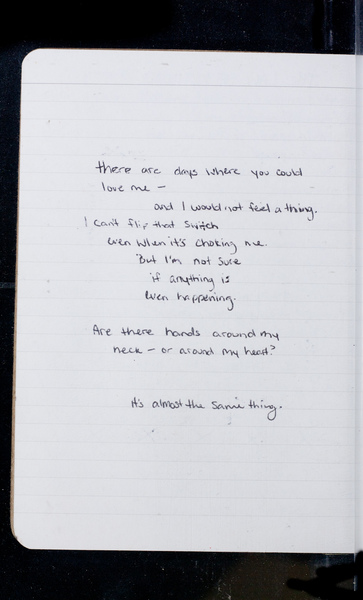 there are days where you could
love me —
and I would not feel a thing.
I can't flip that switch
even when it's choking me.
But I'm not sure
if anything is
even happening.
Are there hands around my
neck — or around my heart?
it's almost the same thing.